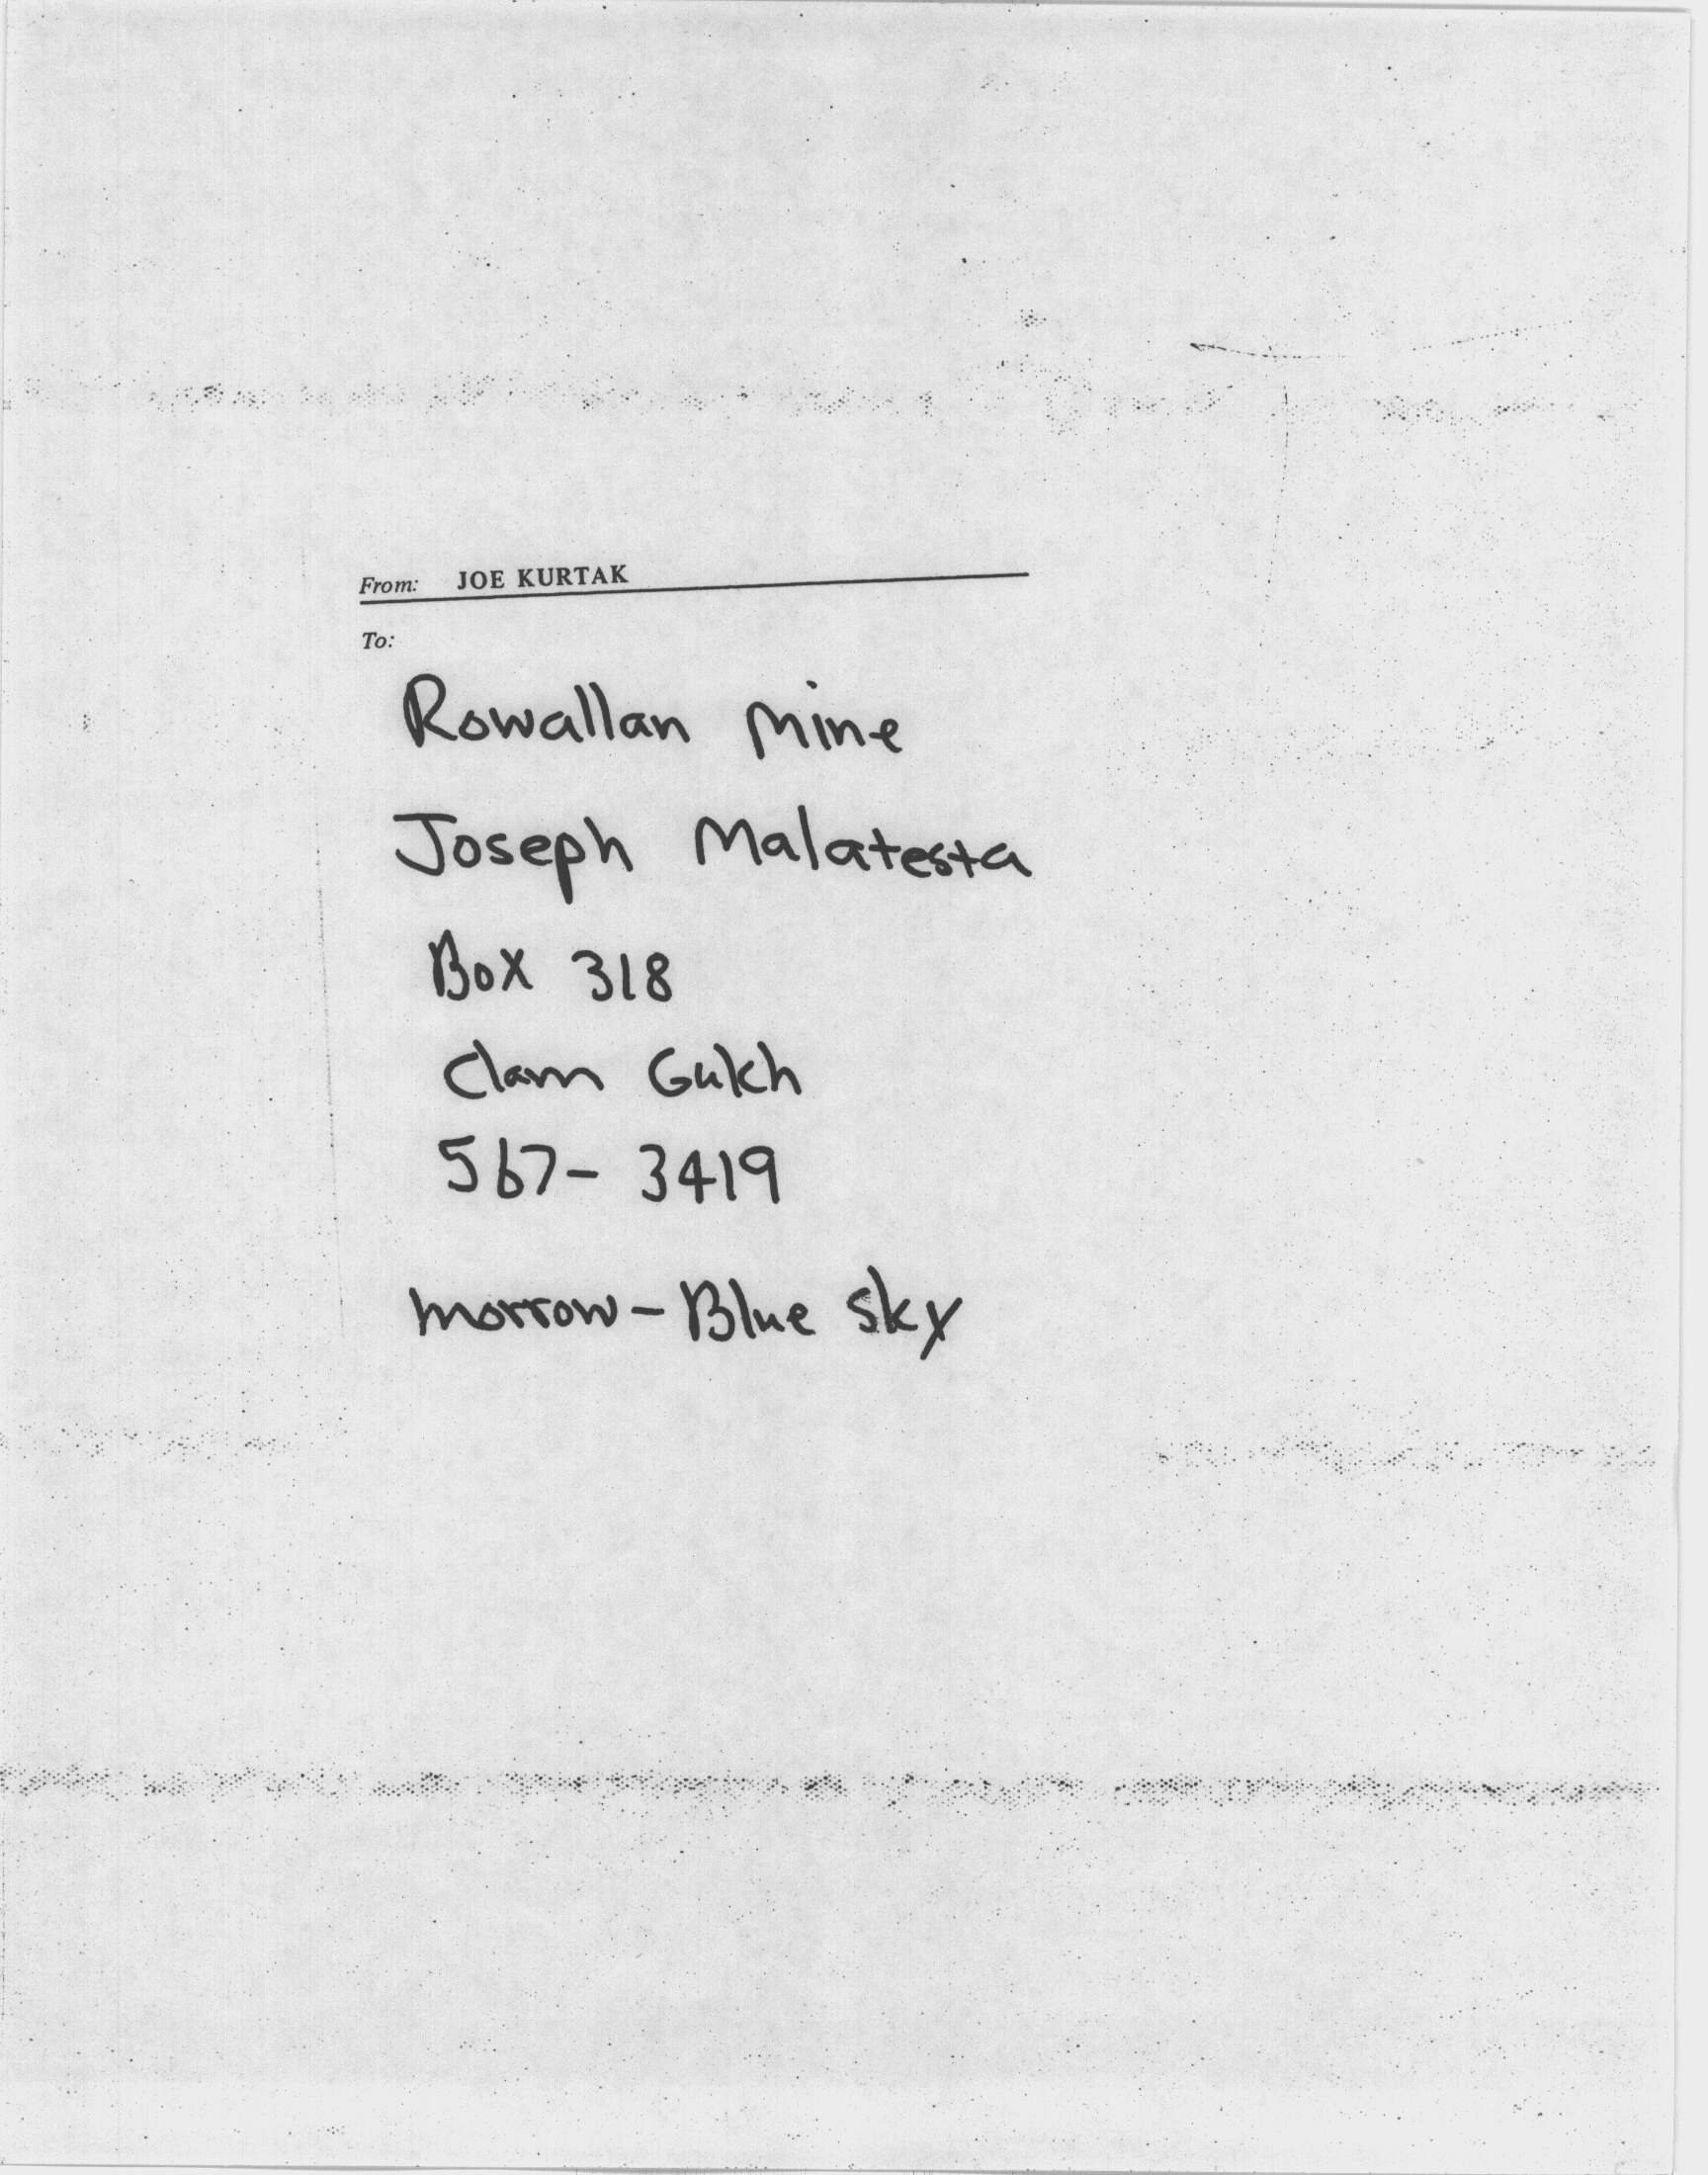 From: JOE KURTAK
To:
Rowallan Mine
Joseph Malatesta
Box 318
Clam Gulch
567- 3419
morrow - Blue sky